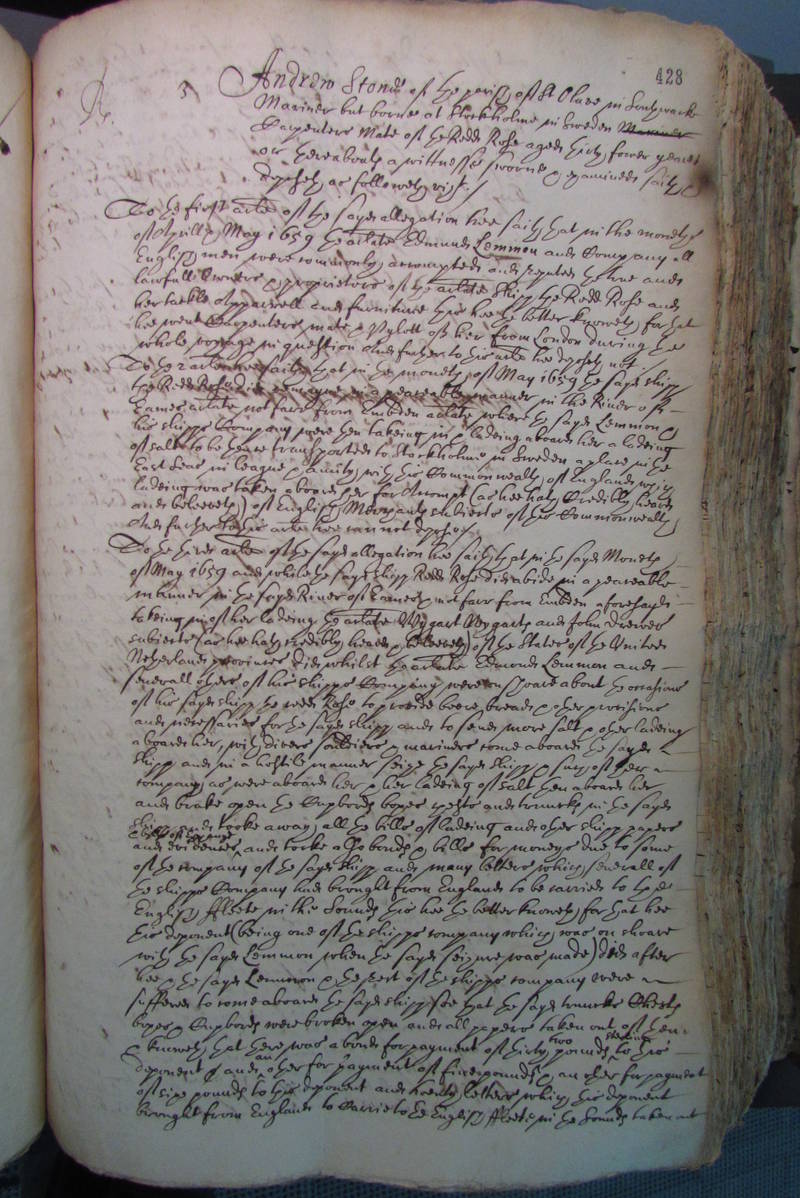 428
Rp. 3 Andrew Stone of the parish of St Olave in Southwarke
Mariner but borne at Stockholme in Sweden Mariner
Carpenters Mate of the Redd Rose aged thirty fower yeares
or thereabouts a wittnesse sworne & examined saith &
deposeth as followeth vizt. /
To the first arlte of the sayd allegation hee saith that in the moneths
of Aprill & May 1659 the arlate Edmund Lemmon and Company all
English men were commonly accompted and reputed the true and
lawfull Owners & proprietors of the arlate shipp the Redd Rose and
her tackle apparrell and furniture this hee the better knoweth for that
hee went Carpenters mate & Pylott of her from London during the
whole voyage in question And further to this arlte hee deposeth not
To the 2 arlte hee saith that in the moneth of May 1659 the sayd shipp
the Redd Rose did remayne in a peaceable manner in the River of
Eames arlate not farr from Embden arlate where the sayd Lemmon &
his shipps Company were then takeing in & ladeing aboard her a ladeing
of salt to be thence transported to Stockholme in Sweden a place in the
East Seas in league & amity with this Commonwealth of England which
ladeing was taken aboard her for Accompt (as hee hath credibly heard
and beleeveth) of English Merchants subiects of this Commonwealth
And further to this arlte hee cannot depose /
To the third arlte of the sayd allegation hee saith that in the sayd Moneth
of May 1659 and while the sayd shipp Redd Rose did abide in a peaceable
manner in the sayd River of Eames & not farr from Embden aforesayd
takeing in of her ladeing the arlate Wygart Weygarts and John Drewes
subiects (as hee hath credibly heard & beleeveth) of the States of the United
Netherland provinces did whilst the arlate Edmond Lemmon and
severall others of his shipps Company were on shoare about the occasions
of his sayd shipp the Redd Rose to provide beere bread & other provisions
and necessaries for the sayd shipp and to send more salt & other ladeing
aboard her, with divers souldiers & mariners come aboard the sayd
shipp and in a hostile manner seize the sayd shipp & such of her
company as were aboard her & her ladeing of salt then aboard her
and brake open the Cupbords boxes chests and truncks in the sayd
shipp and tooke away all the bills of ladeing and other shipp papers
and evidences and tooke also bonds & bills for moneys due to some
of the company of the sayd shipp and many letters which severall of
the shipps Company had brought from England to be carried to the
English ffleete in the Sound this hee the better knoweth for that hee
this deponent (being one of the shipps company which was on shoare
with the sayd Lemmon when the sayd seizure was made) did after
hee & the sayd Lemmon & the rest of the shipps company were
suffered to come aboard the sayd shipp see that the sayd truncks Chests
boxes & Cupbords were broken open and all papers taken out of them
knoweth that there was a bond for payment of thirty two pounds sterling to this
deponent & an other for payment of five pounds & an other for payment
of sixe pounds to this deponent and twenty letters which this deponent
brought from England to Carrie to the English ffleete in the Sound taken out